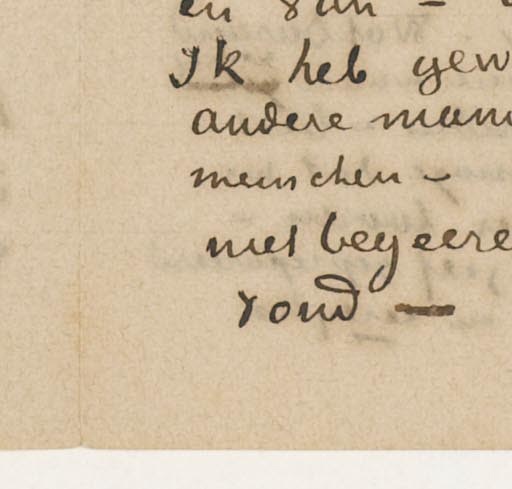 en
Ik heb gew
andere man
menschen -
met begeere
rond —